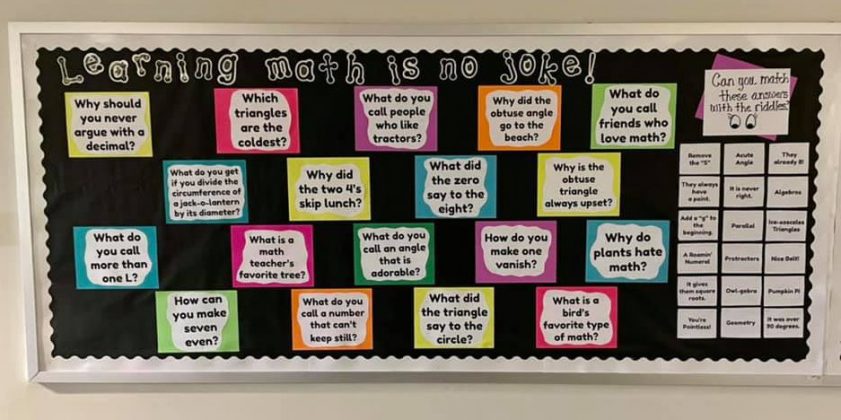 Learning math is no joke!
Why should
you never
argue with a
decimal?
Which
triangles
are the
coldest?
What do you
call people
who like
tractors?
Why did the
obtuse angle
go to the
beach?
What do
you call
friends who
love math?
Can you match
these answers
with the riddles?
What do you get
if you divide the
circumference of
a jack-o-lantern
by its diameter?
Why did
the two 4's
skip lunch?
What did
the zero
say to the
eight?
Why is the
obtuse
triangle
always upset?
What do
you call
more than
one L?
What is a
math
teacher's
favorite tree?
What do you
call an angle
that is
adorable?
How do you
make one
vanish?
Why do
plants hate
math?
How can
you make
seven
even?
What do you
call a number
that can't
keep still?
What did
the triangle
say to the
circle?
What is a
bird's
favorite type
of math?
Remove
the "S"
Acute
Angle
They
already 8!
They always
have
a point.
It is never
right.
Algebros
Add a "g" to
the
beginning.
Parallel
Ice-sosceles
Triangles
A Roamin'
Numeral
Protractors
Nice Belt!
It gives
them square
roots.
Owl-gebra
Pumpkin Pi
You're
Pointless!
Geometry
It was over
90 degrees.